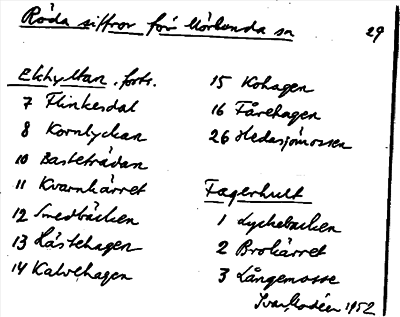 Röda siffror för Mörlunda sn 29
Ekhyltan, forts.
7 Flinkesdal
8 Kornlyckan
10 Basteträdan
11 Kvarnkärret
12 Smedbäcken
13 Hästehagen
14 Kalvehagen
15 Kohagen
16 Fårehagen
26 Hedasjömossen
Fagerhult
1 Lyckebacken
2 Brokärret
3 Långemosse
Ivar Modéer 1952